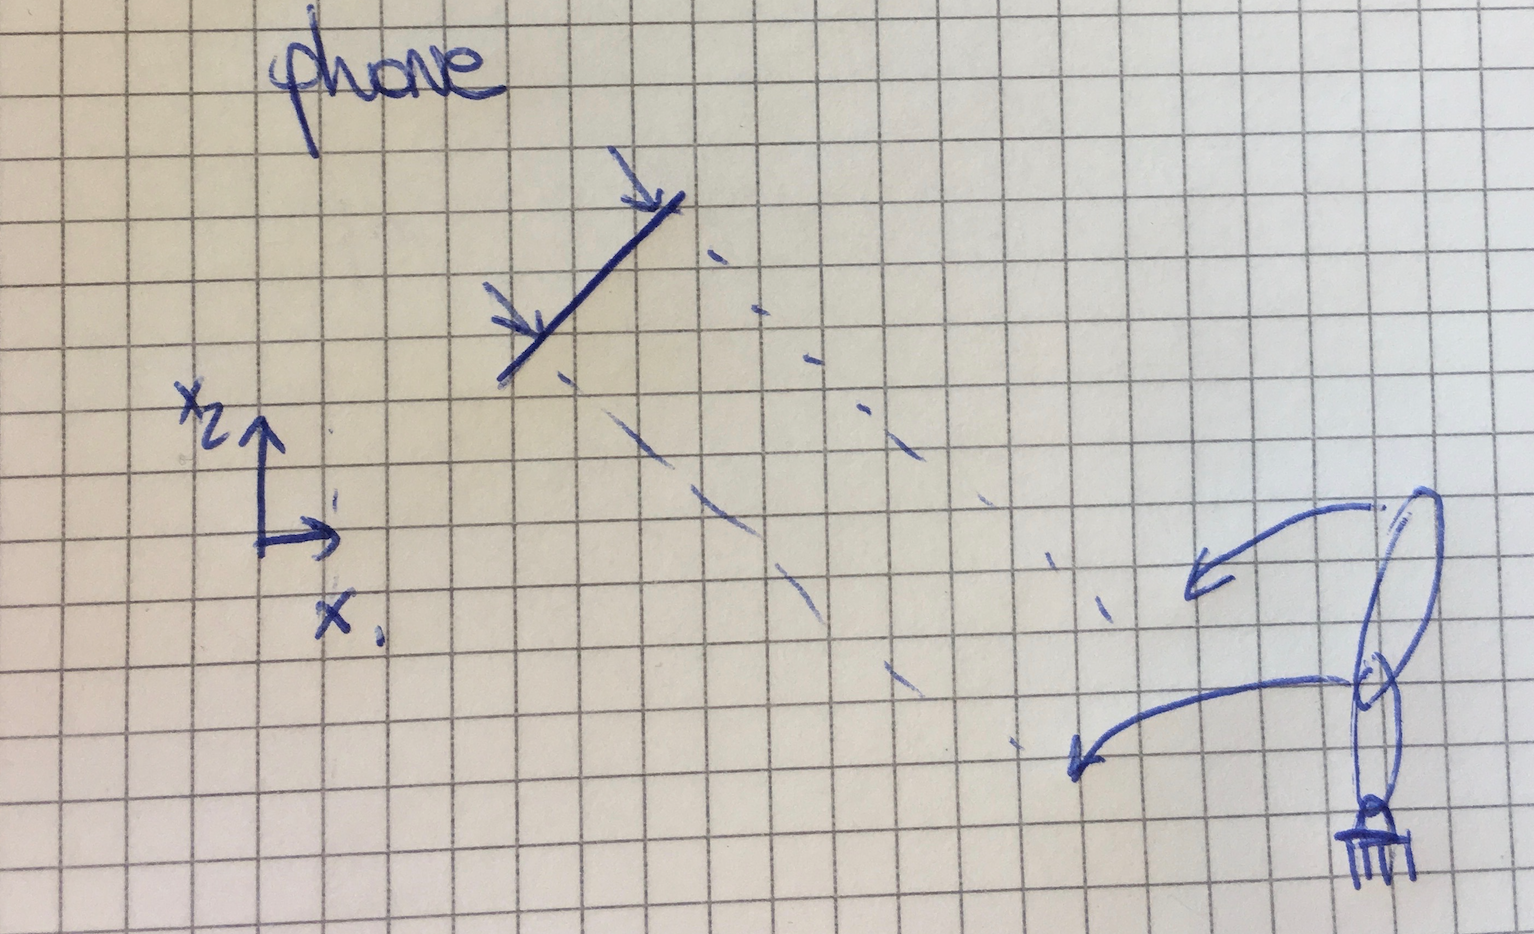 phone
x2
x1